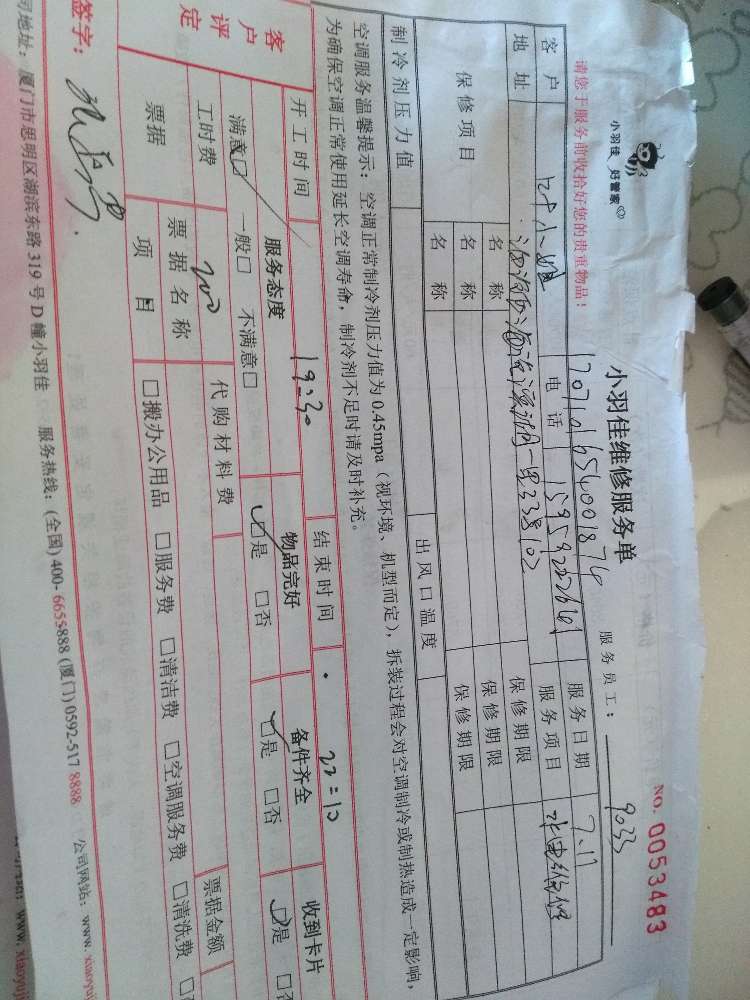 小羽佳 好管家
小羽佳维修服务单
NO. 0053483
请您于服务前收拾好您的贵重物品!
服务员工: 9033
1707101654001874
客户 电话 15959227661 服务日期 7.17
地址 服务项目 水电维修
保修项目 名称 保修期限
名称 保修期限
名称 保修期限
制冷剂压力值 出风口温度
空调服务温馨提示: 空调正常制冷剂压力值为0.45mpa(视环境、机型而定), 拆装过程会对空调制冷或制热造成一定影响,
为确保空调正常使用延长空调寿命, 制冷剂不足时请及时补充。
开工时间 19:30 结束时间 22:10
客户评定 服务态度 物品完好 备件齐全 收到卡片
满意□ 一般□ 不满意□ □是 □否 □是 □否 □是 □否
工时费 200 代购材料费 票据金额
票据 票据名称
项目 □搬办公用品 □服务费 □清洁费 □空调服务费 □清洗费
签字:
司地址: 厦门市思明区湖滨东路319号D幢小羽佳 服务热线: (全国) 400-6655888 (厦门) 0592-517 8888 公司网站: www. xiaoyuj